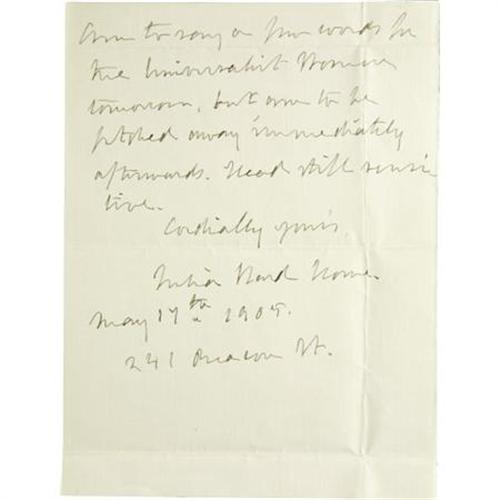 am to say a few words for
the Universalist Women
tomorrow, but am to be
fetched away immediately
afterwards. Head still sensi
tive.
Cordially yours,
Julia Ward Howe.
May 17th 1905.
241 Beacon St.